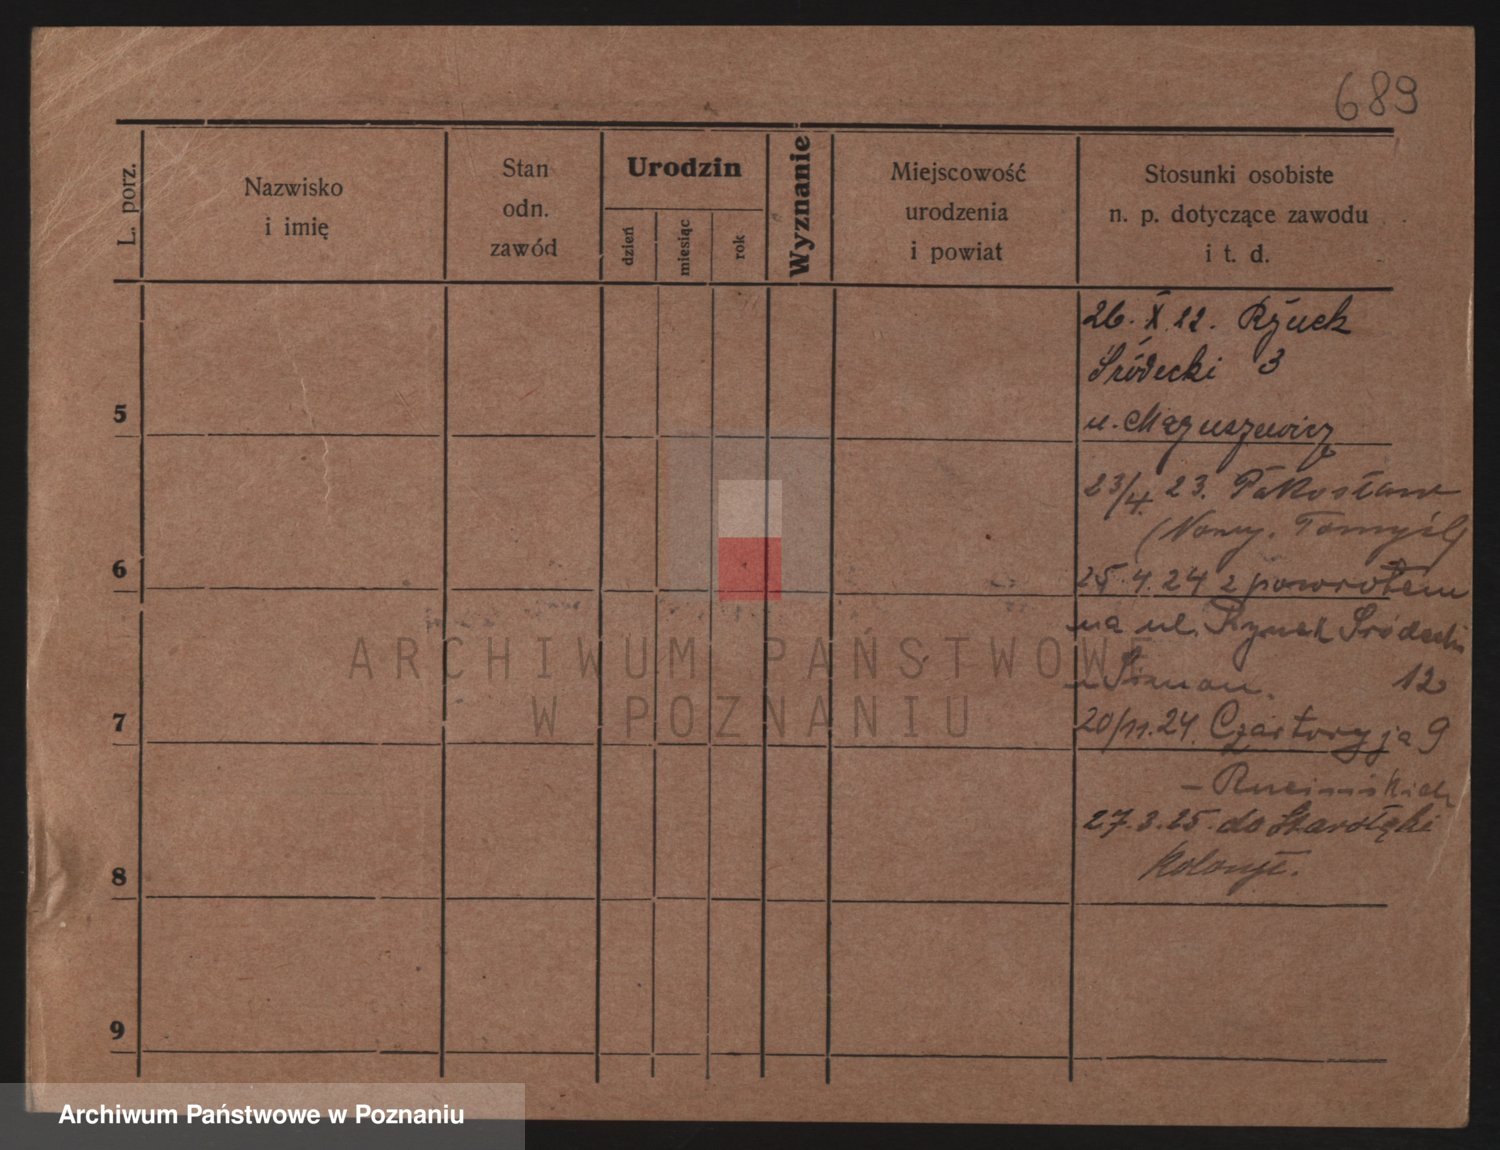 689
L. porz.
Nazwisko
i imię
Stan
odn.
zawód
Urodzin
dzień
miesiąc
rok
Wyznanie
Miejscowość
urodzenia
i powiat
Stosunki osobiste
n. p. dotyczące zawodu
i t. d.
26. X 22. Rynek
Śródecki 3
5
u.
23/4. 23. Pakosław
(Nowy. Tomyśl)
6
25.4.24 z powrotem
na ul. Rynek Śródecki
12
7
20/11.24. Czartoryja 9
27.3.25. do Starołęki
8
9
ARCHIWUM PAŃSTWOWE
W POZNANIU
Archiwum Państwowe w Poznaniu